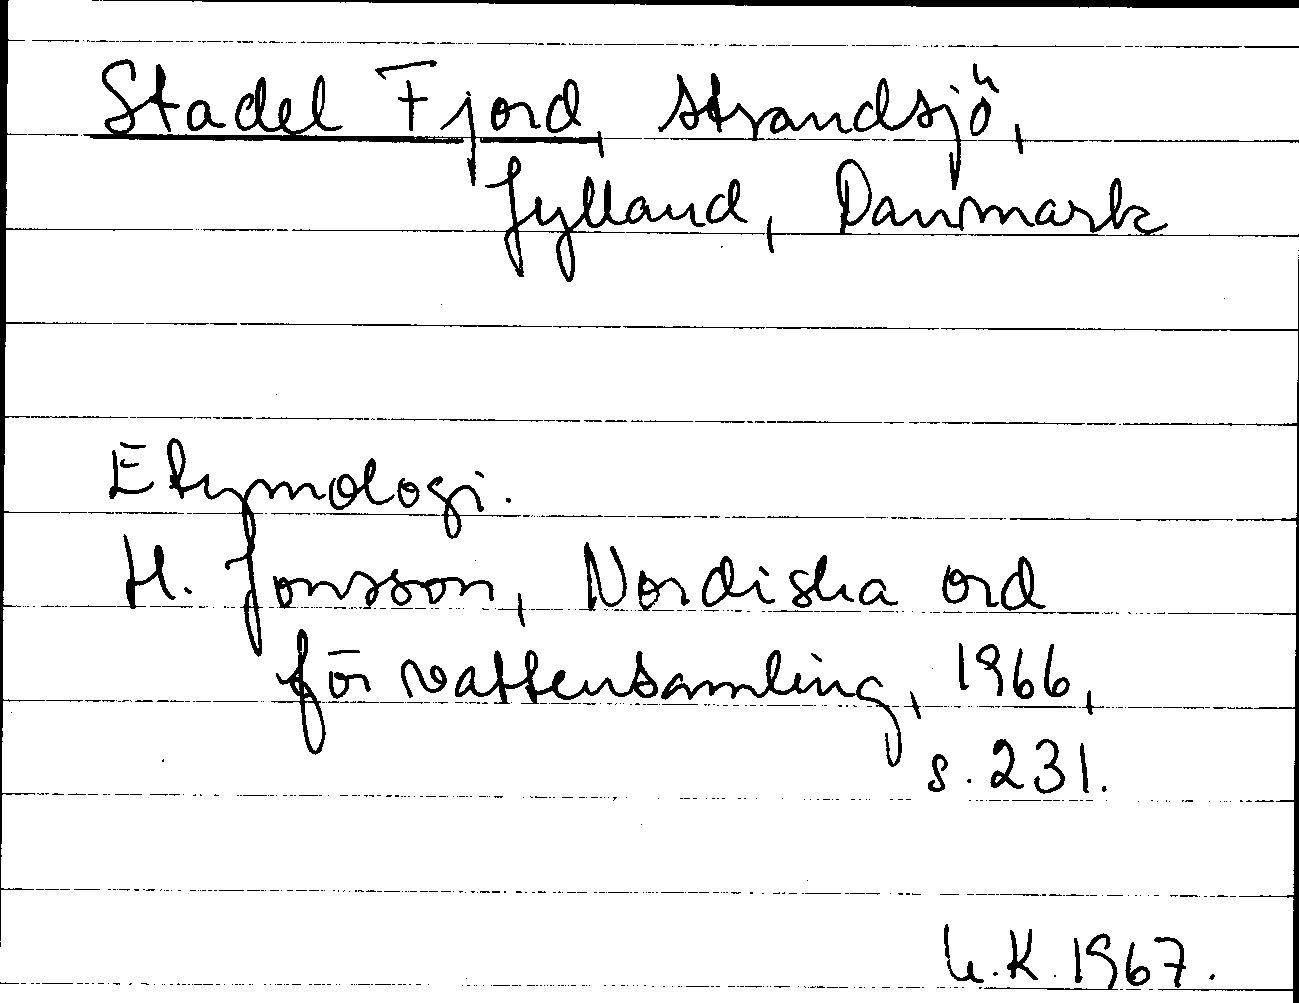 Stadel Fjord, strandsjö,
Jylland, Danmark
Etymologi.
H. Jonsson, Nordiska ord
för vattensamling, 1966,
s. 231.
U.K. 1967.